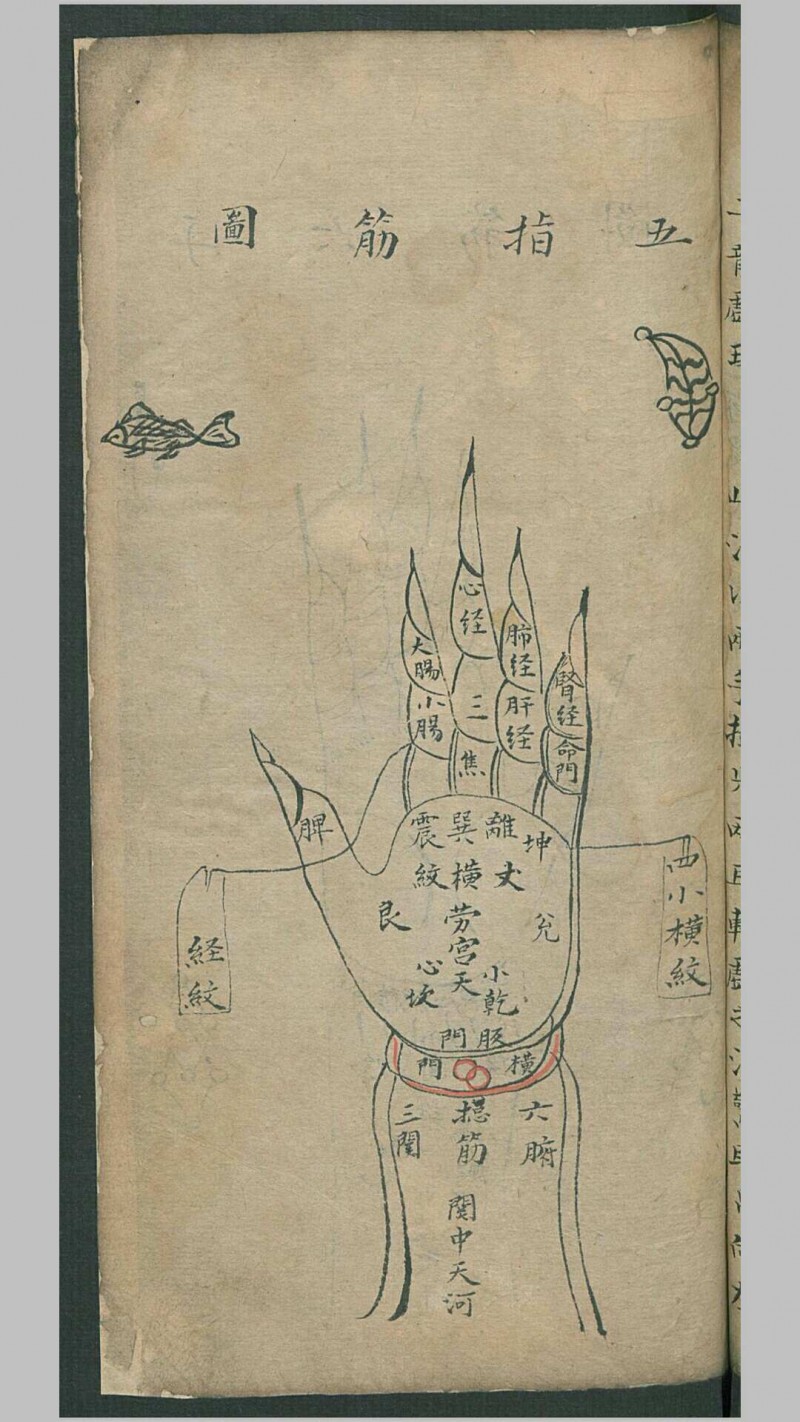 五指筋圖
心経
大腸
小腸
三焦
肺経
肝経
腎経
命門
脾
震巽離坤
紋横
艮
劳宮
兊
心
天
小
坎
乾
門
門
横
経紋
小横紋
三関
総筋
六腑
関中天河